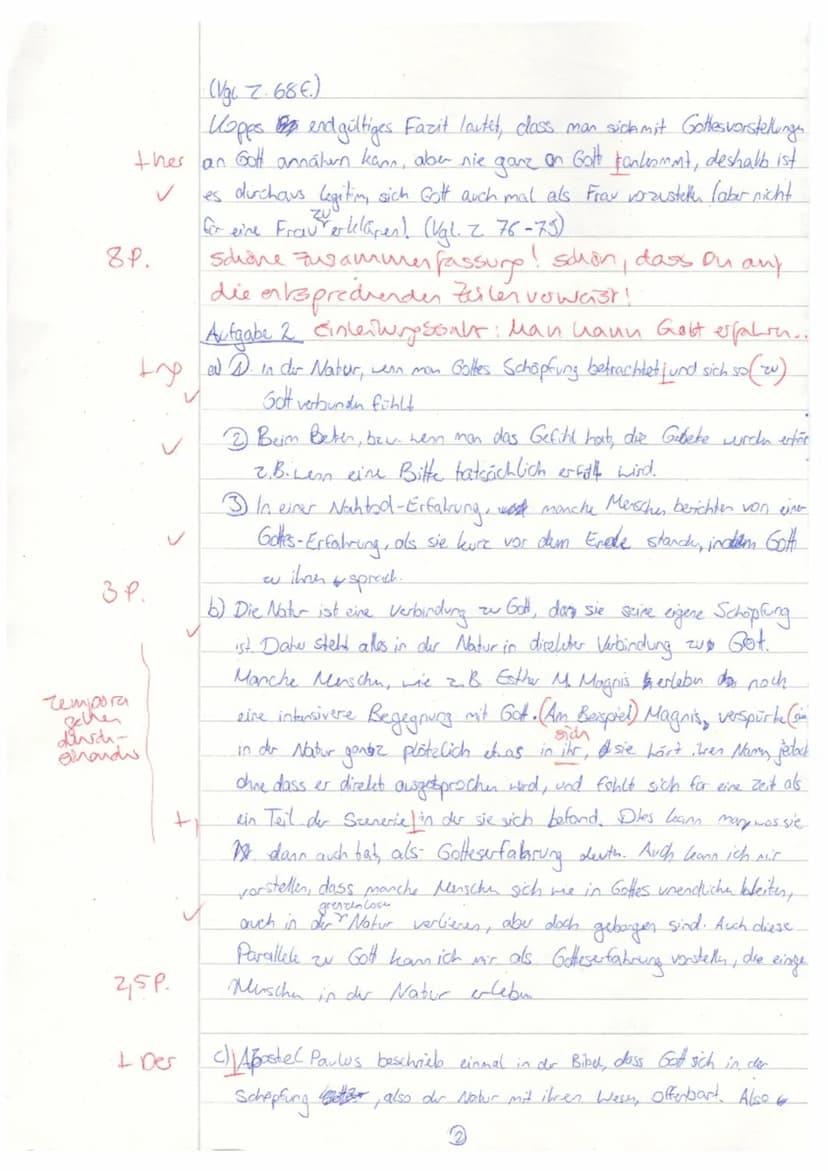 (Vgl. Z. 68f.)
Kopps endgültiges Fazit lautet, dass man sich mit Gottesvorstellungen
+her an Gott annähern kann, aber nie ganz an Gott ankommt, deshalb ist
es durchaus legitim, sich Gott auch mal als Frau vorzustellen (aber nicht
für eine Frau zu erklären). (Vgl. Z 76-79)
8 P. Schöne Zusammenfassung! Schön, dass Du auf
die entsprechenden Zeilen verweist!
Aufgabe 2 Einleitungssatz: Man kann Gott erfahren..
a) ① In der Natur, wenn man Gottes Schöpfung betrachtet und sich so (zu)
Gott verbunden fühlt
② Beim Beten, bzw. wenn man das Gefühl hat, die Gebete werden erhört
z.B. wenn eine Bitte tatsächlich erfüllt wird.
③ In einer Nahtod-Erfahrung, manche Menschen berichten von einer
Gottes-Erfahrung, als sie kurz vor dem Ende standen, indem Gott
zu ihnen sprach.
3 P.
b) Die Natur ist eine Verbindung zu Gott, da sie seine eigene Schöpfung
ist. Daher steht alles in der Natur in direkter Verbindung zu Gott.
Manche Menschen, wie z.B Esther M. Magnis erleben noch
Tempora gehen durch-einander
eine intensivere Begegnung mit Gott. (Am Beispiel) Magnis, verspürte
sich
in der Natur ganz plötzlich etwas in ihr, sie hört ihren Namen jedoch
ohne dass er direkt ausgesprochen wird, und fühlt sich für eine Zeit als
+, ein Teil der Szenerie in der sie sich befand. Dies kann man, was sie
dann auch tat, als Gotteserfahrung deuten. Auch kann ich mir
vorstellen, dass manche Menschen sich wie in Gottes unendlichen Weiten,
grenzenlosen
auch in der Natur verlieren, aber doch geborgen sind. Auch diese
Parallele zu Gott kann ich mir als Gotteserfahrung vorstellen, die einige
2,5 P. Menschen in der Natur erleben
+ Der c) Apostel Paulus beschrieb einmal in der Bibel, dass Gott sich in der
Schöpfung, also der Natur mit ihren Wesen, offenbart. Also
②